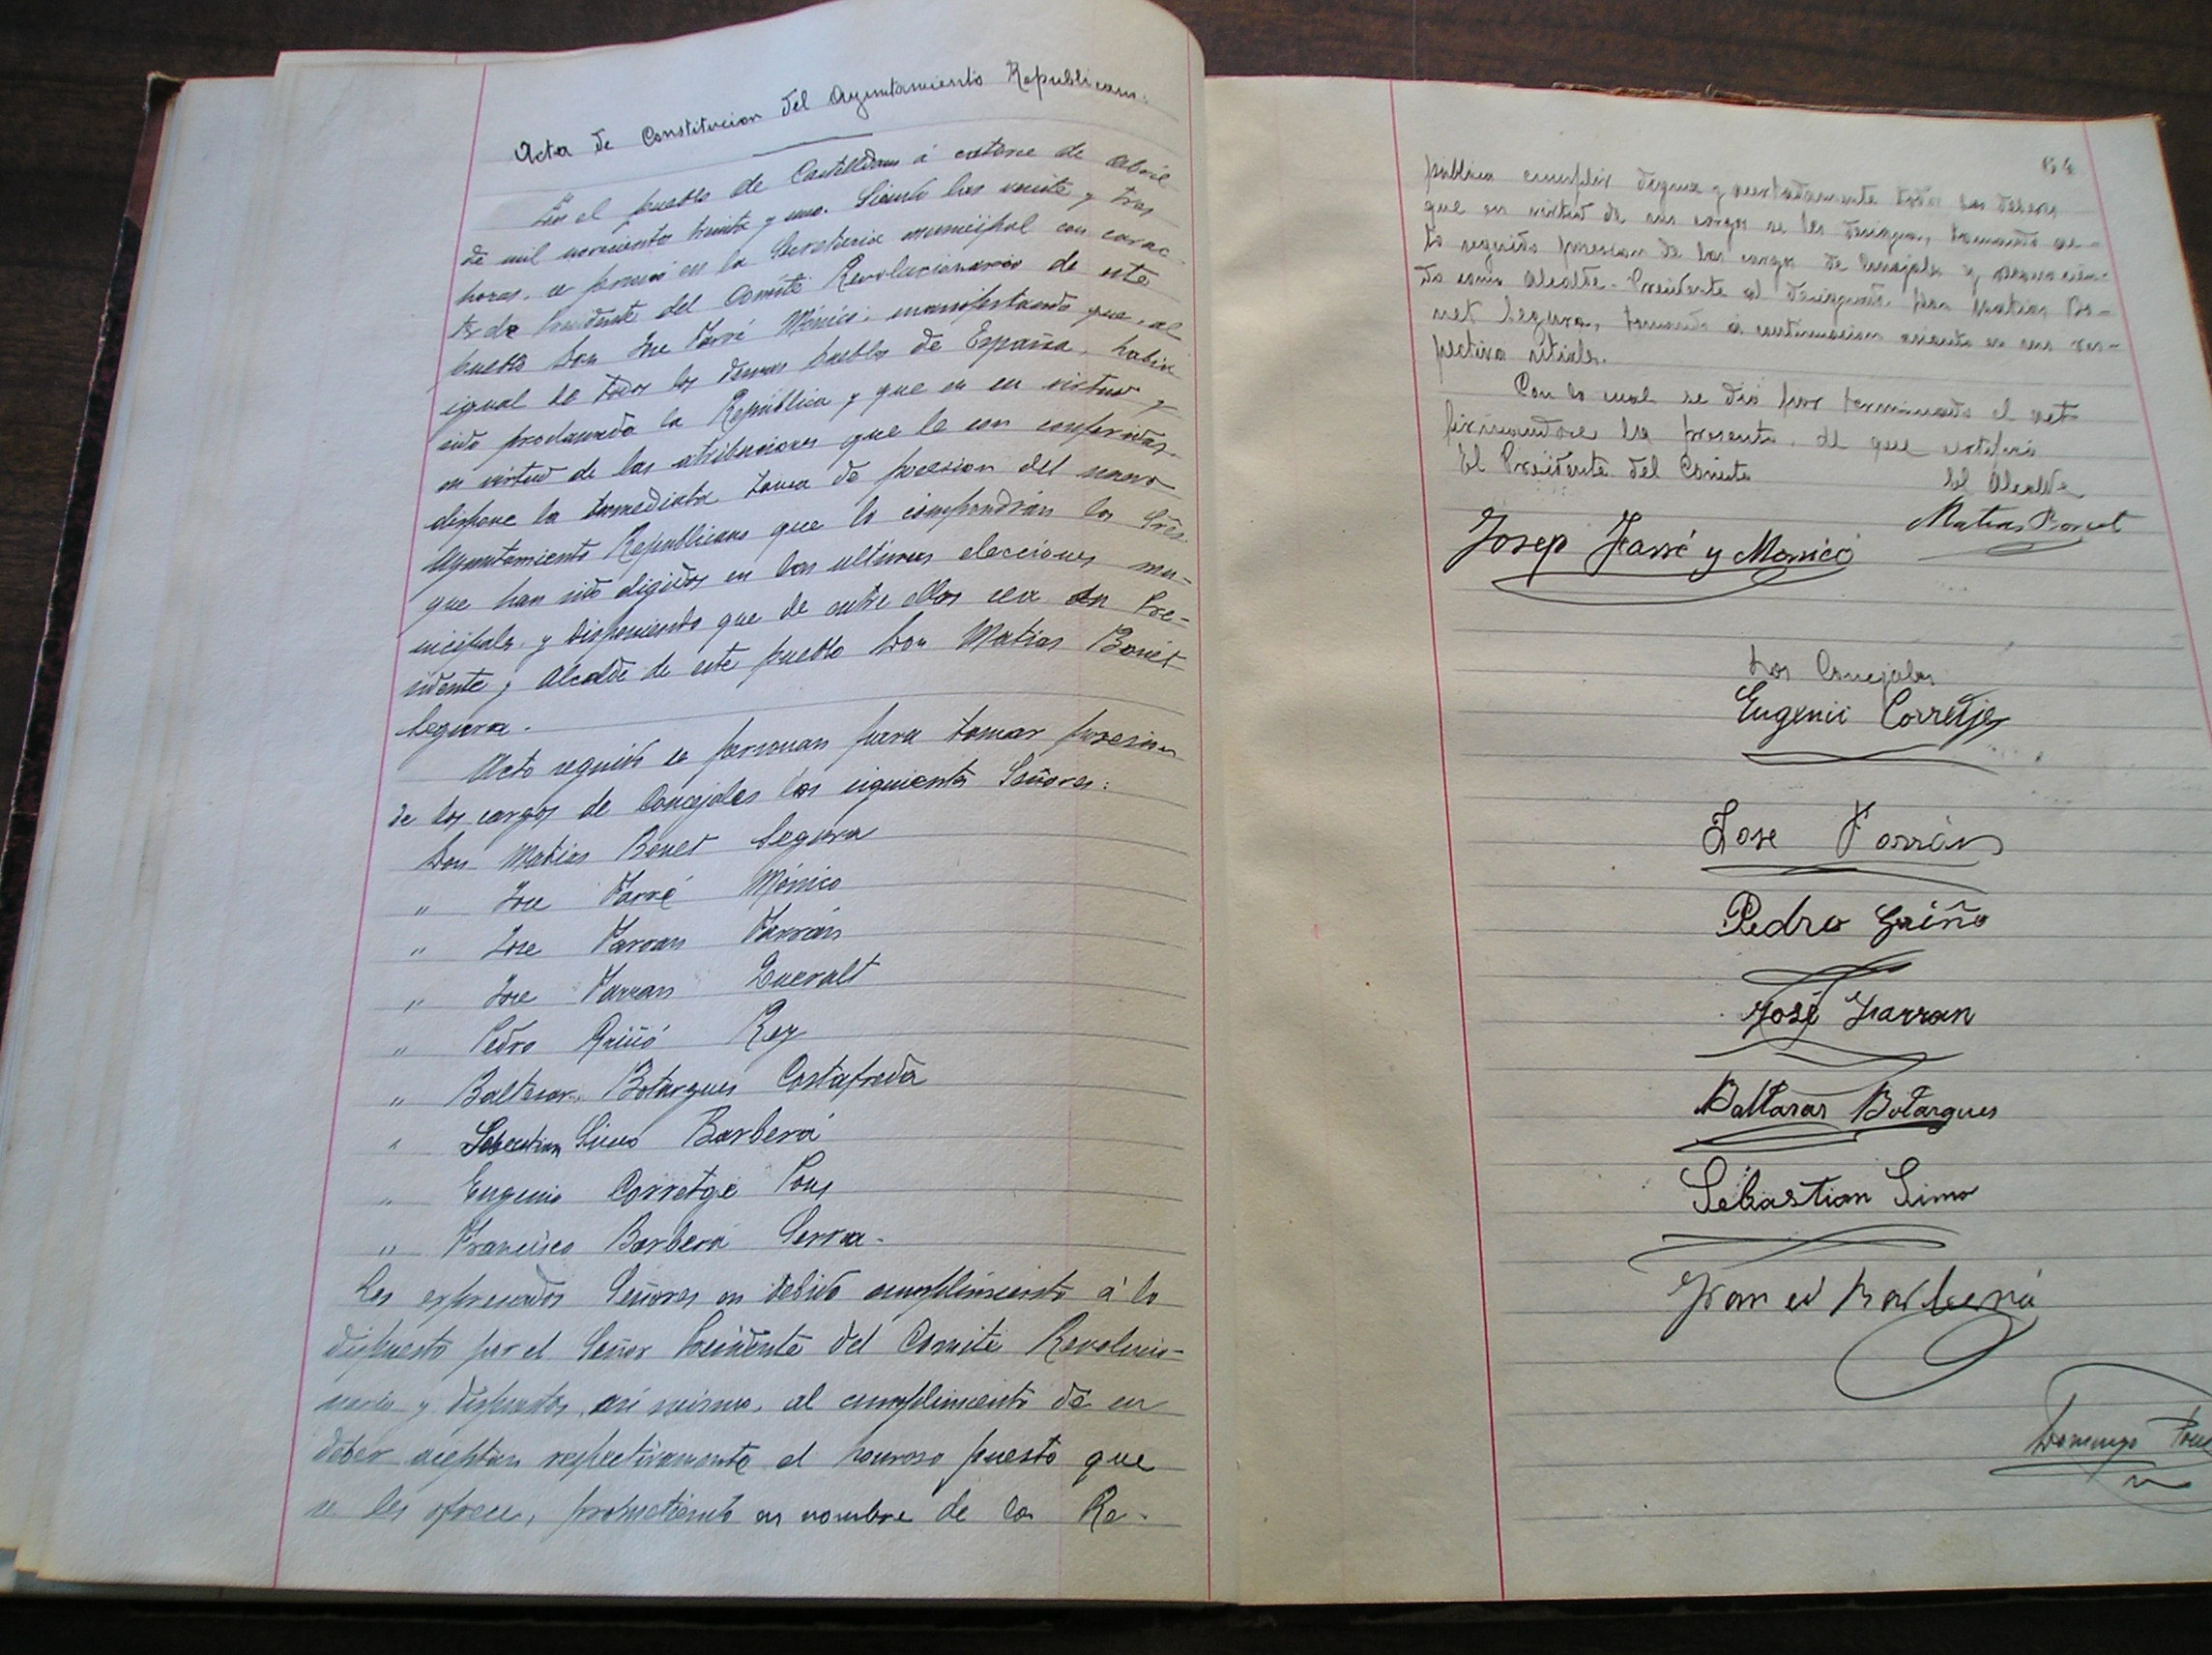 Acta de Constitucion del Ayuntamiento Republicano.
En el pueblo de Castelldans á catorce de Abril
de mil novecientos treinta y uno. Siendo las veinte y tres
horas, se personó en la Secretaria municipal con carac-
ter de Presidente del Comité Revolucionario de este
pueblo Don Jose Farré Mónico, manifestando que, al
igual de todos los demas pueblos de España, habia
sido proclamada la República y que en su virtud y
en virtud de las atribuciones que le son conferidas
dispone la inmediata toma de posesion del nuevo
Ayuntamiento Republicano que lo compondrán los Sres.
que han sido eligidos en las ultimas elecciones mu-
nicipales y disponiendo que de entre ellos sea Pre-
sidente y Alcalde de este pueblo Don Matias Bonet
Segura.
Acto seguido se personan para tomar posesion
de los cargos de Concejales los siguientes Señores:
Don Matias Bonet Segura
" Jose Farré Mónico
" Jose Farran Farrán
" Jose Farran Queralt
" Pedro Griñó Rey
" Baltasar Botargues Costafreda
" Sebastian Simo Barberá
" Eugenio Corretge Pons
" Francisco Barberá Serra.
Los expresados Señores en debido cumplimiento á lo
dispuesto por el Señor Presidente del Comité Revolucio-
nario y dispuestos, asi mismo, al cumplimiento de su
deber aceptan respectivamente el honroso puesto que
se les ofrece, prometiendo en nombre de la Re-
64
pública cumplir digna y acertadamente todos los deberes
que en virtud de sus cargos se les designan, tomando ac-
to seguido posesion de los cargos de Concejales y reconocien-
do como Alcalde-Presidente al designado Don Matias Bo-
net Segura, tomando á continuacion asiento en sus res-
pectivos sitiales.
Con lo cual se dió por terminado el acto
firmandose la presente, de que certifico
El Presidente del Comite El Alcalde
Josep Farré y Monicó Matias Bonet
Los Concejales
Eugenio Corretje
Jose Farrán
Pedro Griño
José Farran
Baltasar Botargues
Sebastian Simo
Barberá
Domingo